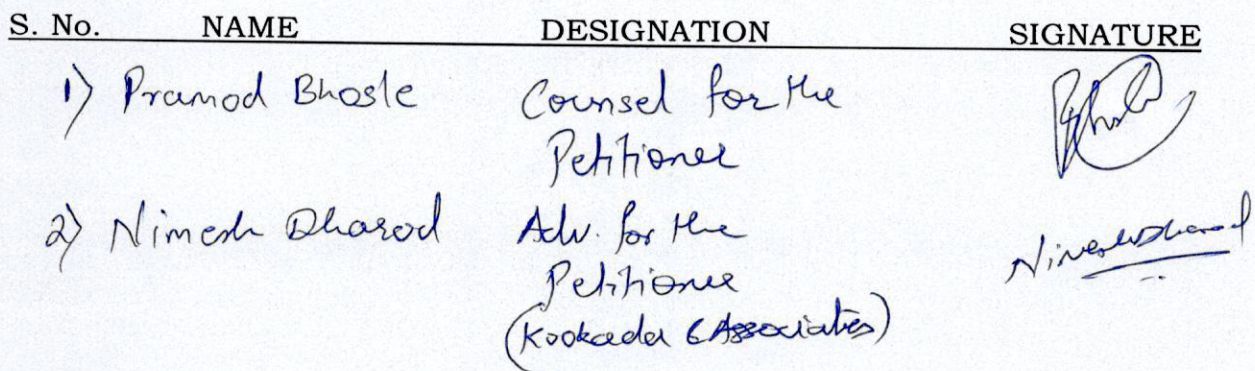 S. No. NAME DESIGNATION SIGNATURE
1) Pramod Bhosle Counsel for the
Petitioner
2) Nimesh Dharod Adv. for the
Petitioner
NimeshDharod
(Kookada & Associates)